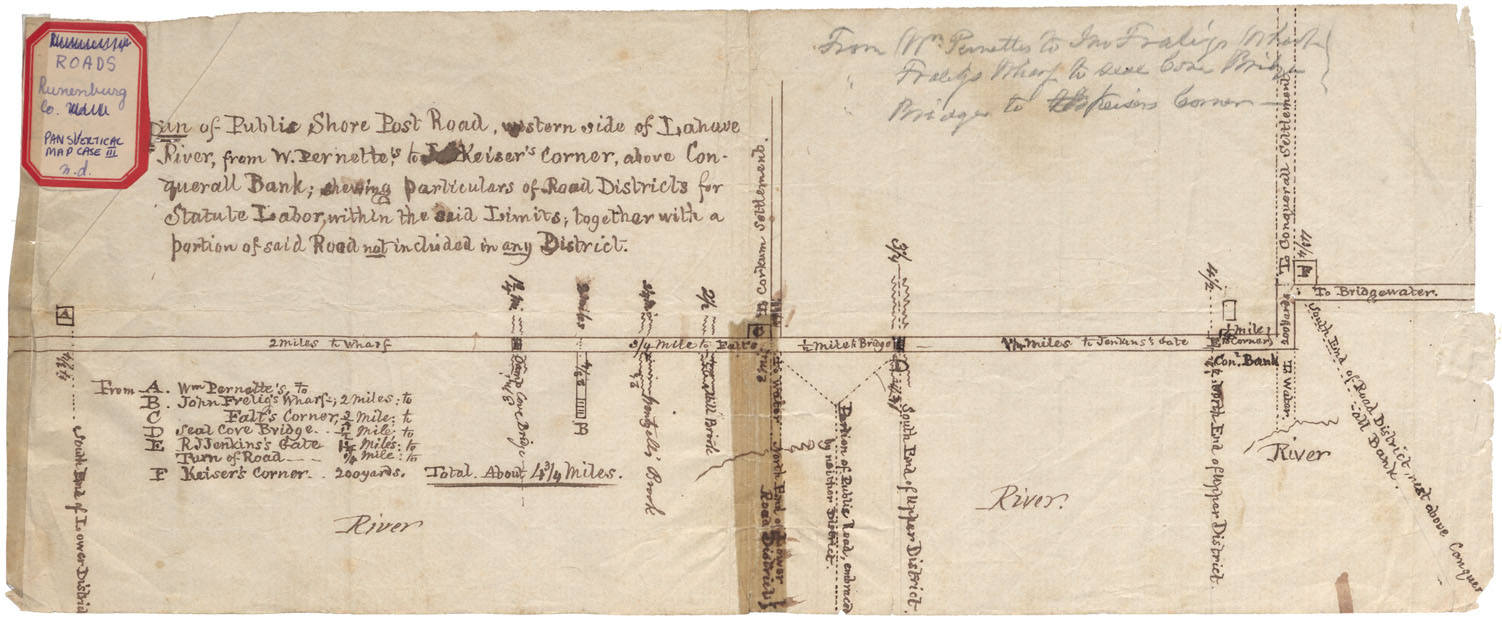 ROADS
Lunenburg
Co.
PANS VERTICAL
MAP CASE III
n.d.
From Wm Pernettes to Jno Fraligs Wharf
Fraligs Wharf to Seal Cove Bridge
Bridge to Keisers Corner
Plan of Public Shore Post Road, western side of Lahave
River, from W. Pernette's, to J. Keiser's Corner, above Con-
querall Bank; shewing particulars of Road Districts for
Statute Labor, within the said Limits; together with a
portion of said Road not included in any District.
A
South End of Lower District
2 miles to Wharf
1 1/4 mi
Cove Bridge
2 miles
B
Brook
2 1/2
Mill Brook
3/4 mile to Falt's
To Corkum Settlement.
C
To Water
North End of Lower
Road District
1/2 mile to Bridge
Portion of Public Road, embraced
by neither District.
3 1/4
South End of Upper District.
1 1/4 miles to Jenkins's Gate
4 1/2
North End of Upper District.
1/4 mile
to Corner
Con'l Bank
200 yards
To Water.
To Conquerall Settlement
4 3/4
To Bridgewater.
South End of Road District, next above Conquer-
all Bank.
From A. Wm Pernette's, to
B. John Frelig's Wharf; 2 miles; to
C Falt's Corner, 3/4 mile; to
Seal Cove Bridge... 1/2 mile; to
E R J Jenkins's Gate 1 1/4 miles; to
Turn of Road 1/4 mile; to
F Keiser's Corner.. 200 yards. Total About 4 3/4 Miles.
River
River.
River